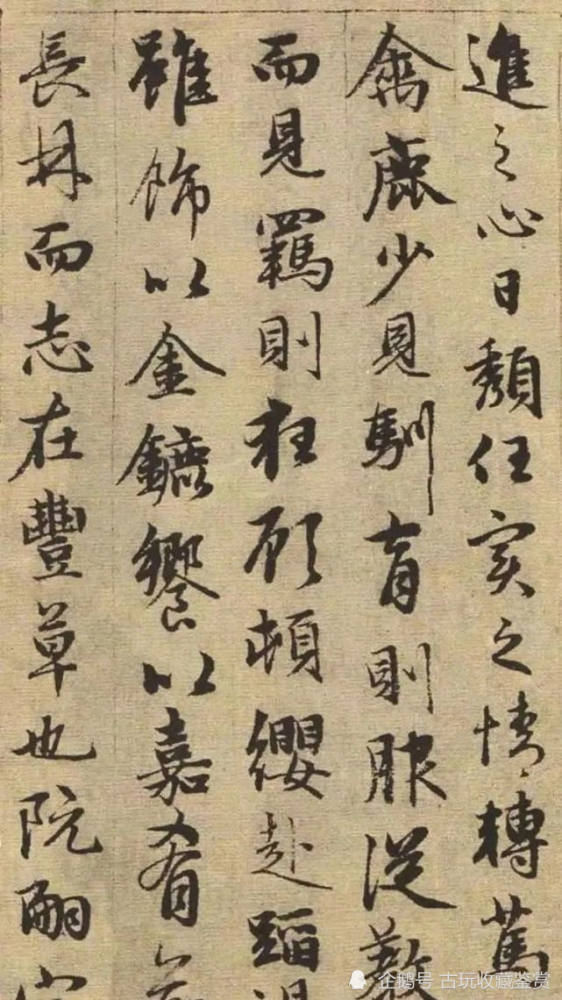 進之心日頹任實之情轉篤
禽鹿少見馴育則服從教
而見羈則狂顧頓纓赴蹈
雖飾以金鑣饗以嘉肴
長林而志在豐草也阮嗣
企鹅号 古玩收藏鉴赏